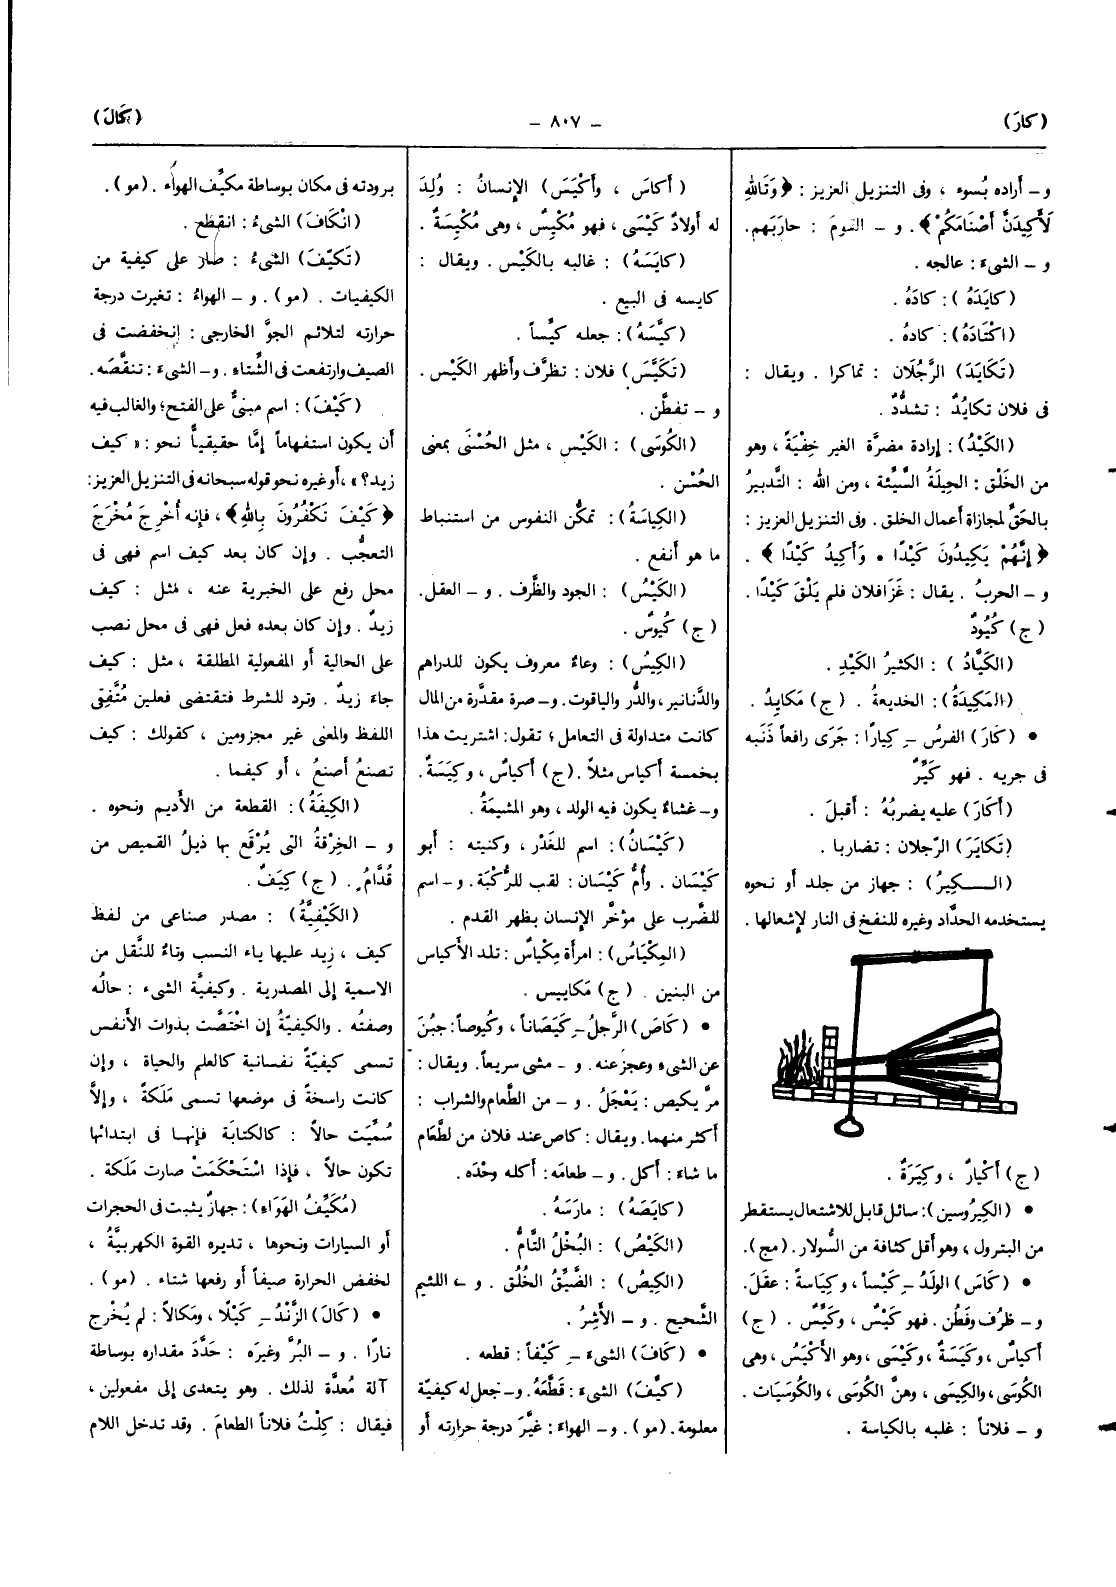 (كارَ)
– ٨٠٧ –
(كَالَ)
و – أراده بُسوء ، وفى التنزيل العزيز : ﴿ وَتَاللهِ
لَأَكِيدَنَّ أَصْنَامَكُمْ ﴾ . و – القومَ : حاربَهم.
و – الشىءَ : عالجه .
(كايَدَهُ ) : كادَهُ .
(اكْتَادَهُ) : كادهُ .
(تَكايَدَ) الرَّجُلَان : تماكرا . ويقال :
فى فلان تكايُدٌ : تشدُّدٌ .
(الكَيْدُ) : إرادة مضرَّة الغير خِفْيَةً ، وهو
من الخَلْق : الحِيلَةُ السَّيِّئة ، ومن الله : التَّدبيرُ
بالحَقِّ لمجازاة أعمال الخلق . وفى التنزيل العزيز :
﴿ إِنَّهُمْ يَكِيدُونَ كَيْدًا * وَأَكِيدُ كَيْدًا ﴾ .
و – الحربُ . يقال : غَزَا فلان فلم يَلْقَ كَيْدًا .
(ج) كُيُودٌ
(الكَيَّادُ ) : الكثيرُ الكَيْدِ .
(المَكِيدَةُ) : الخديعةُ . (ج) مَكايِدُ .
• (كارَ) الفرسُ ـِ كِيارًا : جَرَى رافعاً ذَنَبه
فى جريه . فهو كَيِّرٌ
(أكَارَ) عليه يضربُهُ : أقبلَ .
(تَكايَرَ) الرّجلان : تضاربا .
(الـــكِيرُ) : جهاز من جلد أو نحوه
يستخدمه الحدَّاد وغيره للنفخ فى النار لإشعالها .
(ج) أكْيارٌ ، وكِيَرَةٌ .
• (الكِيرُوسين) : سائل قابل للاشتعال يستقطر
من البترول ، وهو أقل كثافة من السُّولار . (مج).
• (كَاسَ) الولَدُ ـِ كَيْساً ، وكِيَاسةً : عقلَ.
و – ظرُف وفَطُن . فهو كَيْسٌ ، وكَيِّسٌ . (ج)
أكياسٌ ، وكَيَسَةٌ ، وكَيْسَى ، وهو الأكْيَسُ ، وهى
الكُوسَى ، والكِيسَى ، وهنَّ الكُوسَى ، والكُوسَيَات .
و – فلاناً : غلبه بالكياسة .
(أكاسَ ، وأكْيَسَ) الإنسانُ : وُلِدَ
له أولادٌ كَيْسَى ، فهو مُكْيِسٌ ، وهى مُكْيِسَةٌ .
(كايَسَهُ) : غالبه بالكَيْس . ويقال :
كايسه فى البيع .
(كيَّسَهُ) : جعله كيِّساً .
(تَكَيَّسَ) فلان : تظرَّف وأظهر الكَيْس .
و – تفطَّن .
(الكُوسَى) : الكَيْس ، مثل الحُسْنَى بمعنى
الحُسْن .
(الكِياسَةُ) : تمكُّن النفوس من استنباط
ما هو أنفع .
(الكَيْسُ) : الجود والظَّرف . و – العقل .
(ج) كُيوسٌ .
(الكِيسُ) : وعاءٌ معروف يكون للدراهم
والدَّنانير ، والدُّر والياقوت. و– صرة مقدَّرة من المال
كانت متداولة فى التعامل ؛ تقول : اشتريت هذا
بخمسة أكياس مثلاً . (ج) أكياسٌ ، وكِيَسَةٌ .
و – غشاءٌ يكون فيه الولد ، وهو المشيمَةُ .
(كَيْسَانُ) : اسم للغَدْر ، وكنيته : أبو
كَيْسَان . وأُمُّ كَيْسَان : لقب للرُّكبَة . و – اسم
للضَّرب على مؤخَّر الإنسان بظهر القدم .
(المِكْيَاسُ) : امرأة مِكْياسٌ : تلد الأكياس
من البنين . (ج) مَكاييس .
• (كَاصَ) الرَّجلُ ـِ كَيَصَاناً ، وكُيوصاً : جبُنَ
عن الشىء وعجز عنه . و – مشى سريعاً. ويقال :
مرَّ يكيص : يَعْجَلُ . و – من الطَّعام والشراب :
أكثر منهما. ويقال : كاص عند فلان من لطَّعام
ما شاءَ : أكل. و – طعامَه : أكله وحْدَه.
(كايَصَهُ) : مارَسَهُ .
(الكَيْصُ) : البُخْلُ التَّامُّ .
(الكِيصُ) : الضَّيِّقُ الخُلُق . و – اللئيم
الشَّحيح . و – الأشِرُ .
• (كَافَ) الشىءَ ـِ كَيْفاً : قطعه .
(كيَّفَ) الشىءَ : قَطَّعَهُ. و– جعل له كيفيّة
معلومة. (مو) . و– الهواءَ : غيَّرَ درجة حرارته أو
برودته فى مكان بوساطة مكيِّف الهواء . (مو) .
(انْكَافَ) الشىءُ : انقطع .
(تَكيَّفَ) الشىءُ : صار على كيفية من
الكيفيات . (مو) . و – الهواءُ : تغيرت درجة
حرارته لتلائم الجوَّ الخارجى : إنخفضت فى
الصيف وارتفعت فى الشِّتاء . و– الشىءَ : تنقَّصَه.
(كَيْفَ) : اسم مبنىٌّ على الفتح؛ والغالب فيه
أن يكون استفهاماً إمَّا حقيقياً نحو : « كيف
زيد؟ » ، أو غيره نحو قوله سبحانه فى التنزيل العزيز:
﴿ كَيْفَ تَكْفُرُونَ بِاللهِ ﴾ ، فإنه أُخْرِجَ مُخْرَجَ
التعجُّب . وإن كان بعد كيف اسم فهى فى
محل رفع على الخبرية عنه ، مثل : كيف
زيدٌ . وإن كان بعده فعل فهى فى محل نصب
على الحالية أو المفعولية المطلقة ، مثل : كيف
جاءَ زيدٌ . وترد للشرط فتقتضى فعلين مُتَّفِقى
اللفظ والمعنى غير مجزومين ، كقولك : كيف
تصنعُ أصنعُ ، أو كيفما .
(الكِيفَةُ) : القطعة من الأديم ونحوه .
و – الخِرْقةُ التى يُرْقَع بها ذيلُ القميص من
قُدَّامُ . (ج) كِيَفٌ .
(الكَيْفِيَّةُ) : مصدر صناعى من لفظ
كيف ، زِيد عليها ياء النسب وتاءٌ للنَّقل من
الاسمية إلى المصدرية . وكيفيَّة الشىء : حالُه
وصفتُه . والكيفيّةُ إن اخْتَصَّت بذوات الأنفس
تسمى كيفيّةً نفسانية كالعلم والحياة ، وإن
كانت راسخةً فى موضعها تسمى مَلَكةً ، وإلاَّ
سُمِّيَت حالاً : كالكتابَة فإنهـا فى ابتدائها
تكون حالاً ، فإذا اسْتَحْكَمَتْ صارت مَلَكة .
(مُكَيِّفُ الهَوَاءِ) : جهازٌ يثبت فى الحجرات
أو السيارات ونحوها ، تديره القوة الكهربيَّةُ ،
لخفض الحرارة صيفاً أو رفعها شتاء . (مو) .
• (كَالَ) الزَّنْدُ ـِ كَيْلًا ، ومَكالاً : لم يُخْرج
نارًا . و – البُرَّ وغيرَه : حَدَّدَ مقداره بوساطة
آلة مُعدَّة لذلك . وهو يتعدى إلى مفعولين ،
فيقال : كِلْتُ فلاناً الطعامَ . وقد تدخل اللام